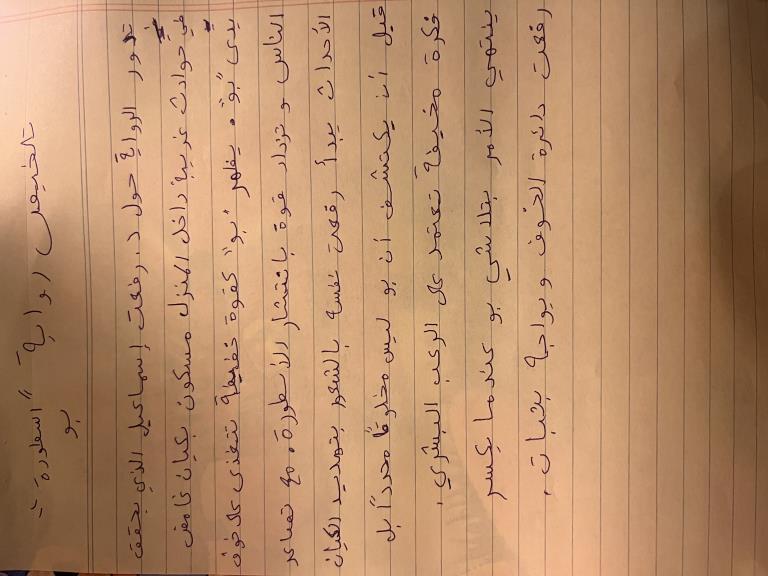 تلخيص رواية "اسطورة
بو"
تدور الرواية حول د. رفعت إسماعيل الذي يحقق
في حوادث غريبة داخل المنزل مسكون بكيان غامض
يدى "بو" يظهر "بو" كقوة خفيفة تتغذى على خوف
الناس و تزداد قوة بانتشار الأسطورة. مع تصاعد
الأحداث يبدأ رفعت نفسه بالشعور بتهديد الكيان
قبل أن يكتشف أن بو ليس مخلوقاً محدداً بل
فكرة مخيفة تعتمد على الرعب البشري،
ينتهي الأمر بتلاشي بو عندما يكسر
رفعت دائرة الخوف ويواجه بثبات.